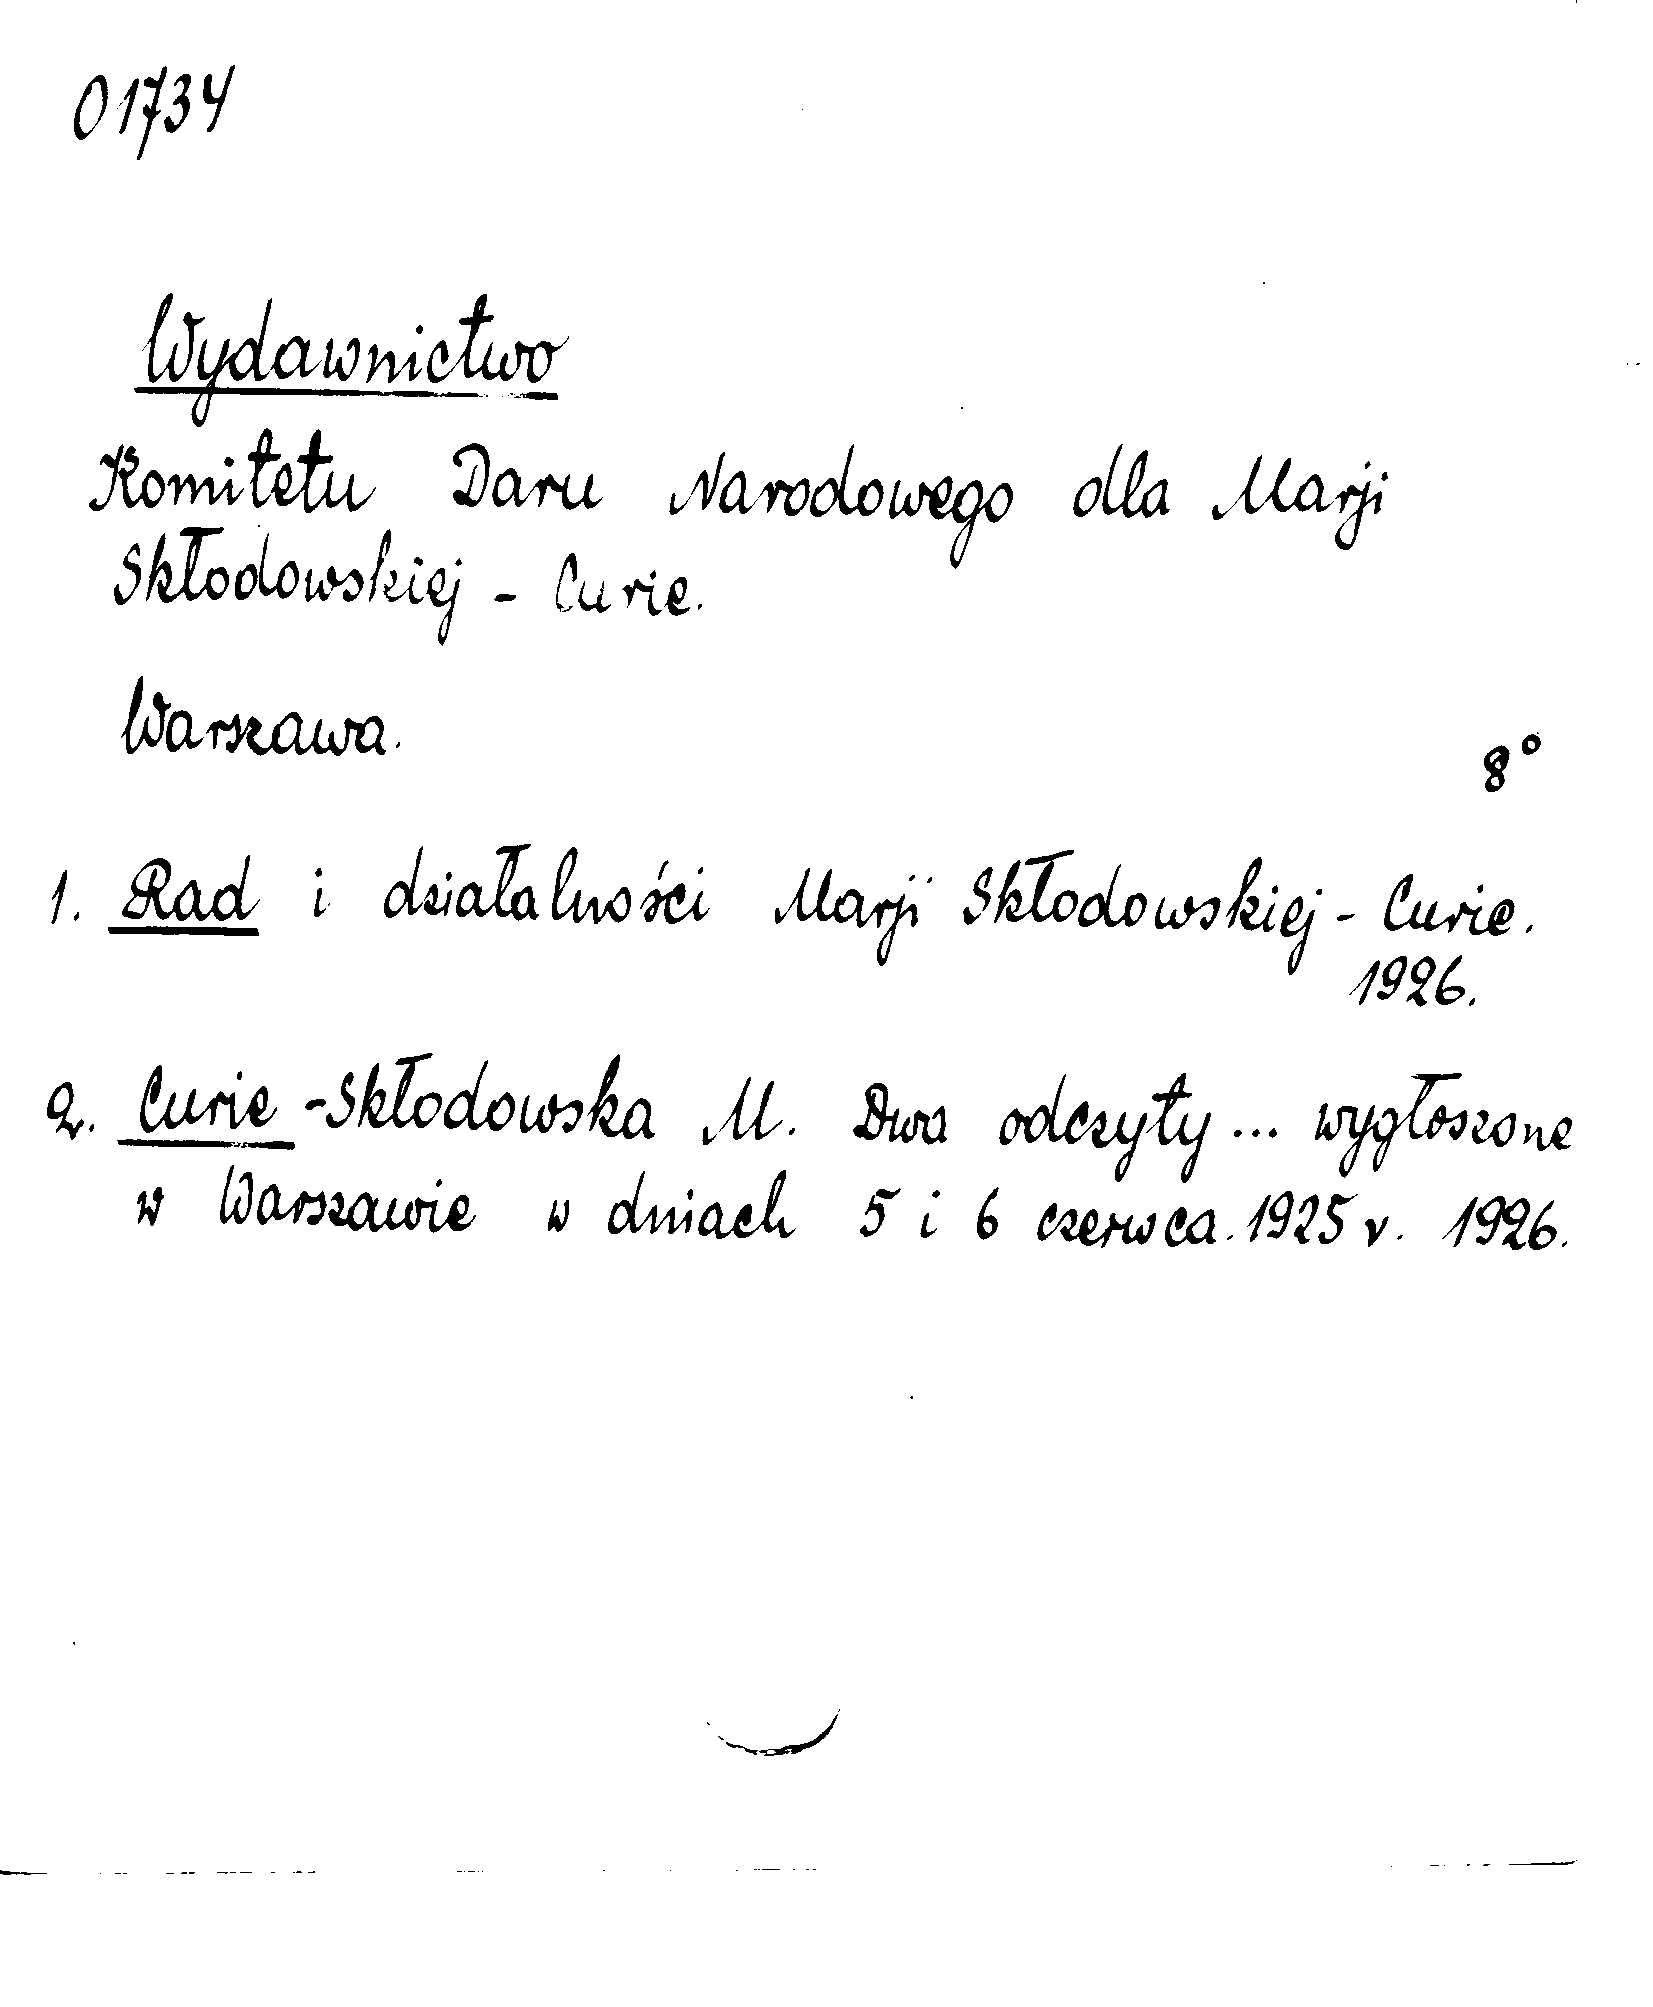 01734
Wydawnictwo
Komitetu Daru Narodowego dla Marji
Skłodowskiej - Curie.
Warszawa.
8°
1. Rad i działalności Marji Skłodowskiej - Curie.
1926.
2. Curie - Skłodowska M. Dwa odczyty ... wygłoszone
w Warszawie w dniach 5 i 6 czerwca. 1925 r. 1926.